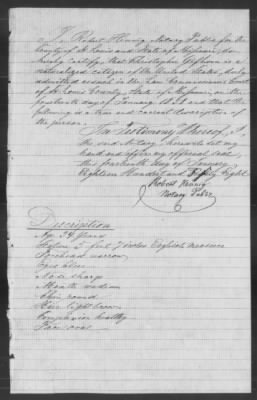 I Robert Hennig Notary Public for the
County of St Louis and State of Missouri, do
hereby certify, that Christopher
naturalized citizen of the United States, duly
admitted as such in the Law Commissioners Court
of St Louis County, State of Missouri, on the
fourteenth day of January 1858 and that the
following is a true and correct description of
the person.
In Testimony Whereof, I,
the said Notary, hereunto set my
hand and affix my official seal,
this fourteenth day of January
Eighteen Hundred and Fifty Eight
Robert Hennig
Notary Public
Description
Age 34 years
Stature 5 feet 7 inches English measure
Forehead narrow
Eyes blue
Nose sharp
Mouth medium
Chin round
Hair light brown
Complexion healthy
Face oval